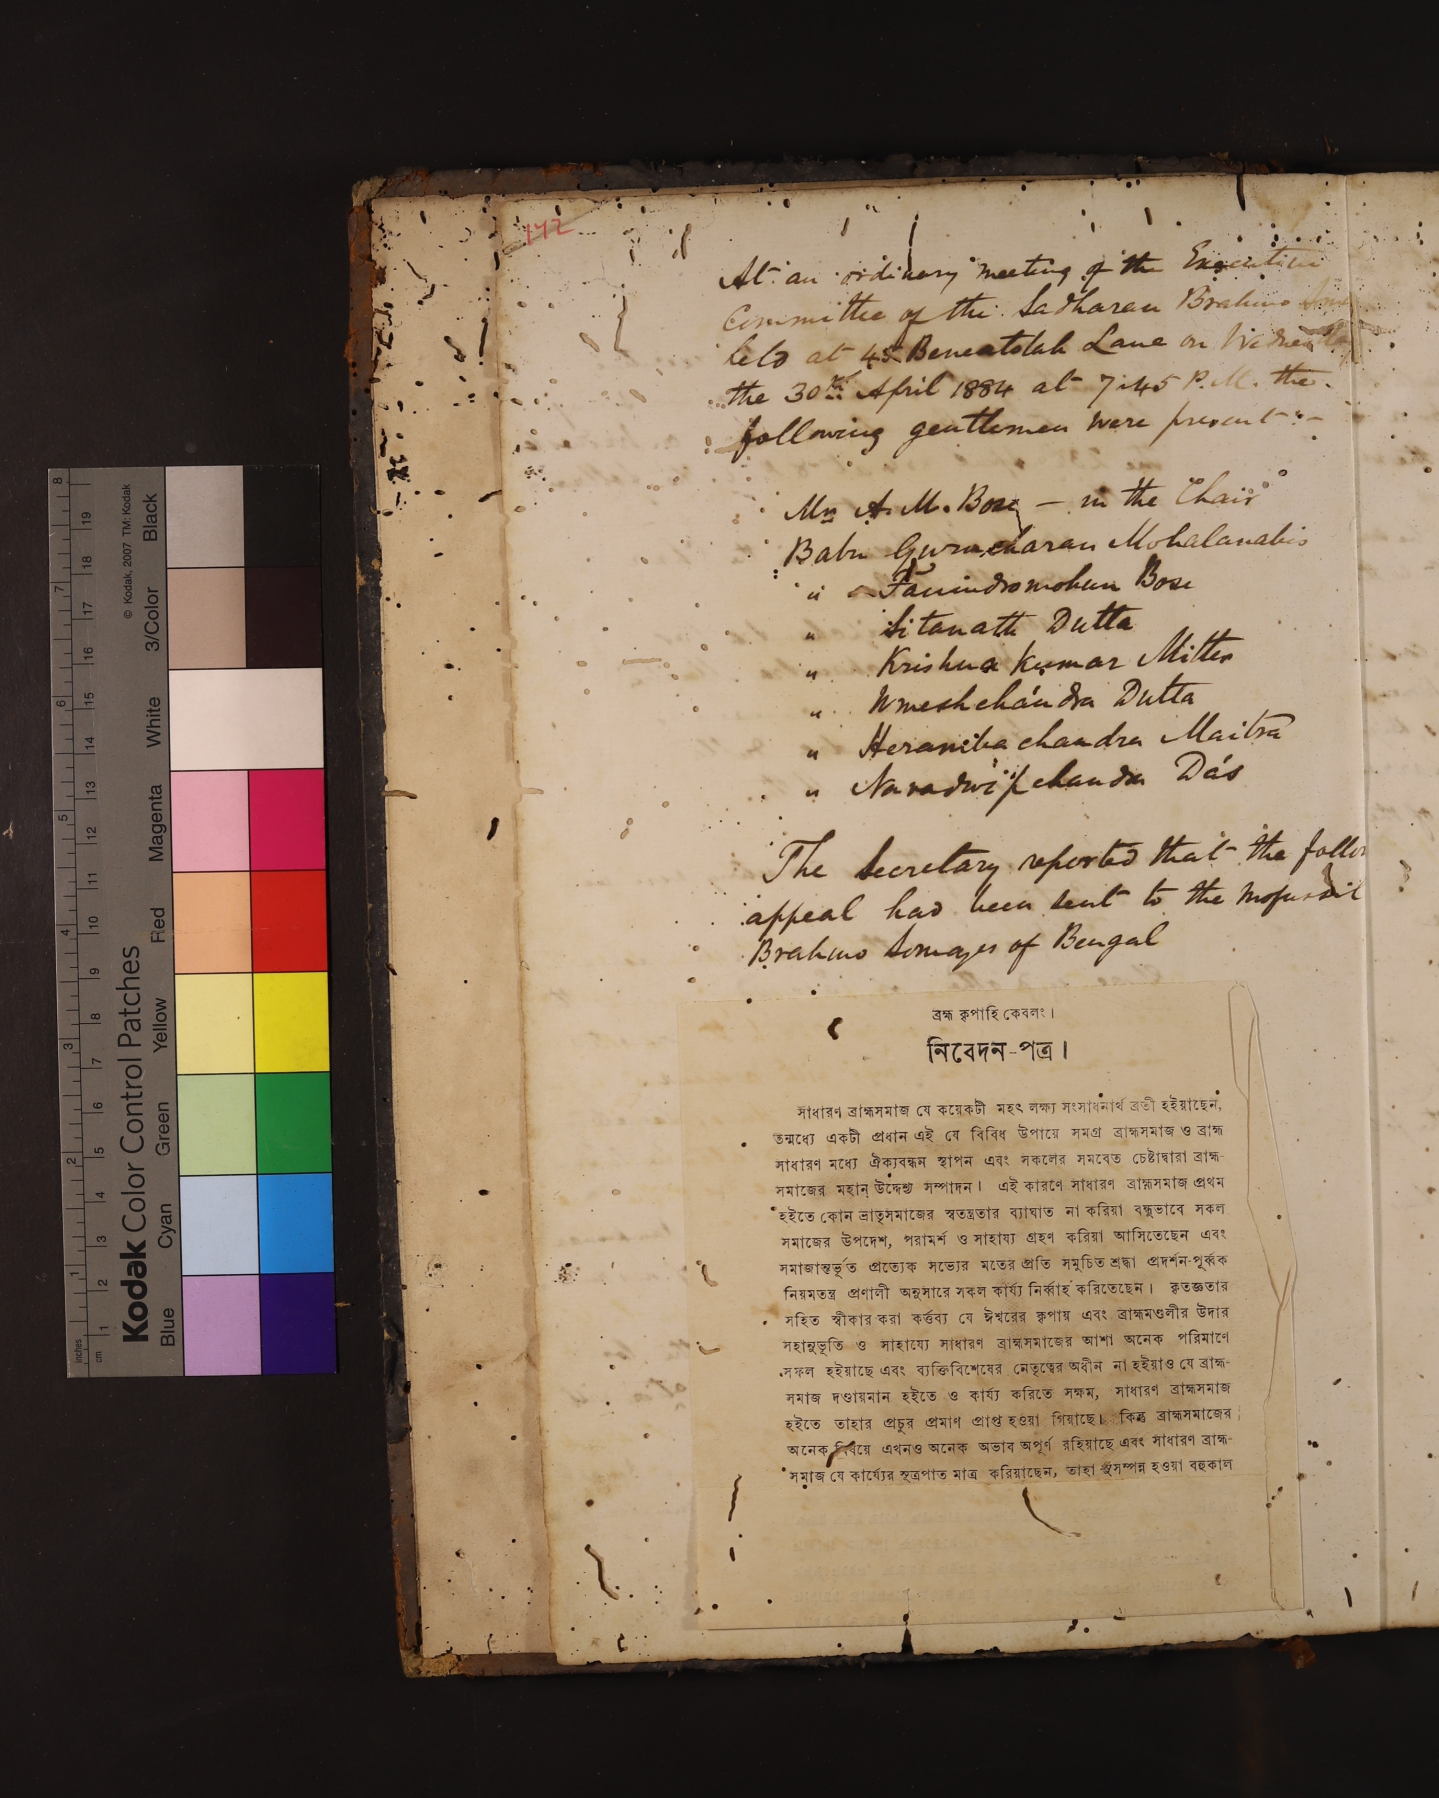 172
At an ordinary meeting of the Executive
Committee of the Sadharan Brahmo
held at 45 Beneatolah Lane on Wednesday
the 30th April 1884 at 7.45 P.M. the
following gentlemen were present :-
Mr A. M. Bose - in the Chair
Babu Gurucharan Mohalanabis
" Fanindromohun Bose
" Sitanath Dutta
" Krishna Kumar Mitter
" Umeshchandra Dutta
" Heramba chandra Maitra
" Navadwip chandra Dás
The Secretary reported that the follow
appeal had been sent to the Mofussil
Brahmo Somajes of Bengal
ব্রহ্ম কৃপাহি কেবলং।
নিবেদন-পত্র।
সাধারণ ব্রাহ্মসমাজ যে কয়েকটী মহৎ লক্ষ্য সংসাধনার্থ ব্রতী হইয়াছেন,
তন্মধ্যে একটী প্রধান এই যে বিবিধ উপায়ে সমগ্র ব্রাহ্মসমাজ ও ব্রাহ্ম
সাধারণ মধ্যে ঐক্যবন্ধন স্থাপন এবং সকলের সমবেত চেষ্টাদ্বারা ব্রাহ্ম-
সমাজের মহান্ উদ্দেশ্য সম্পাদন। এই কারণে সাধারণ ব্রাহ্মসমাজ প্রথম
হইতে কোন ভ্রাতৃসমাজের স্বতন্ত্রতার ব্যাঘাত না করিয়া বন্ধুভাবে সকল
সমাজের উপদেশ, পরামর্শ ও সাহায্য গ্রহণ করিয়া আসিতেছেন এবং
সমাজান্তর্ভূত প্রত্যেক সভ্যের মতের প্রতি সমুচিত শ্রদ্ধা প্রদর্শন-পূর্ব্বক
নিয়মতন্ত্র প্রণালী অনুসারে সকল কার্য্য নির্ব্বাহ করিতেছেন। কৃতজ্ঞতার
সহিত স্বীকার করা কর্ত্তব্য যে ঈশ্বরের কৃপায় এবং ব্রাহ্মমণ্ডলীর উদার
সহানুভূতি ও সাহায্যে সাধারণ ব্রাহ্মসমাজের আশা অনেক পরিমাণে
সফল হইয়াছে এবং ব্যক্তিবিশেষের নেতৃত্বের অধীন না হইয়াও যে ব্রাহ্ম-
সমাজ দণ্ডায়মান হইতে ও কার্য্য করিতে সক্ষম, সাধারণ ব্রাহ্মসমাজ
হইতে তাহার প্রচুর প্রমাণ প্রাপ্ত হওয়া গিয়াছে। কিন্তু ব্রাহ্মসমাজের
অনেক বিষয়ে এখনও অনেক অভাব অপূর্ণ রহিয়াছে এবং সাধারণ ব্রাহ্ম-
সমাজ যে কার্য্যের সূত্রপাত মাত্র করিয়াছেন, তাহা সুসম্পন্ন হওয়া বহুকাল
Kodak Color Control Patches
© Kodak, 2007 TM: Kodak
Blue Cyan Green Yellow Red Magenta White 3/Color Black
inches 1 2 3 4 5 6 7 8
cm 1 2 3 4 5 6 7 8 9 10 11 12 13 14 15 16 17 18 19